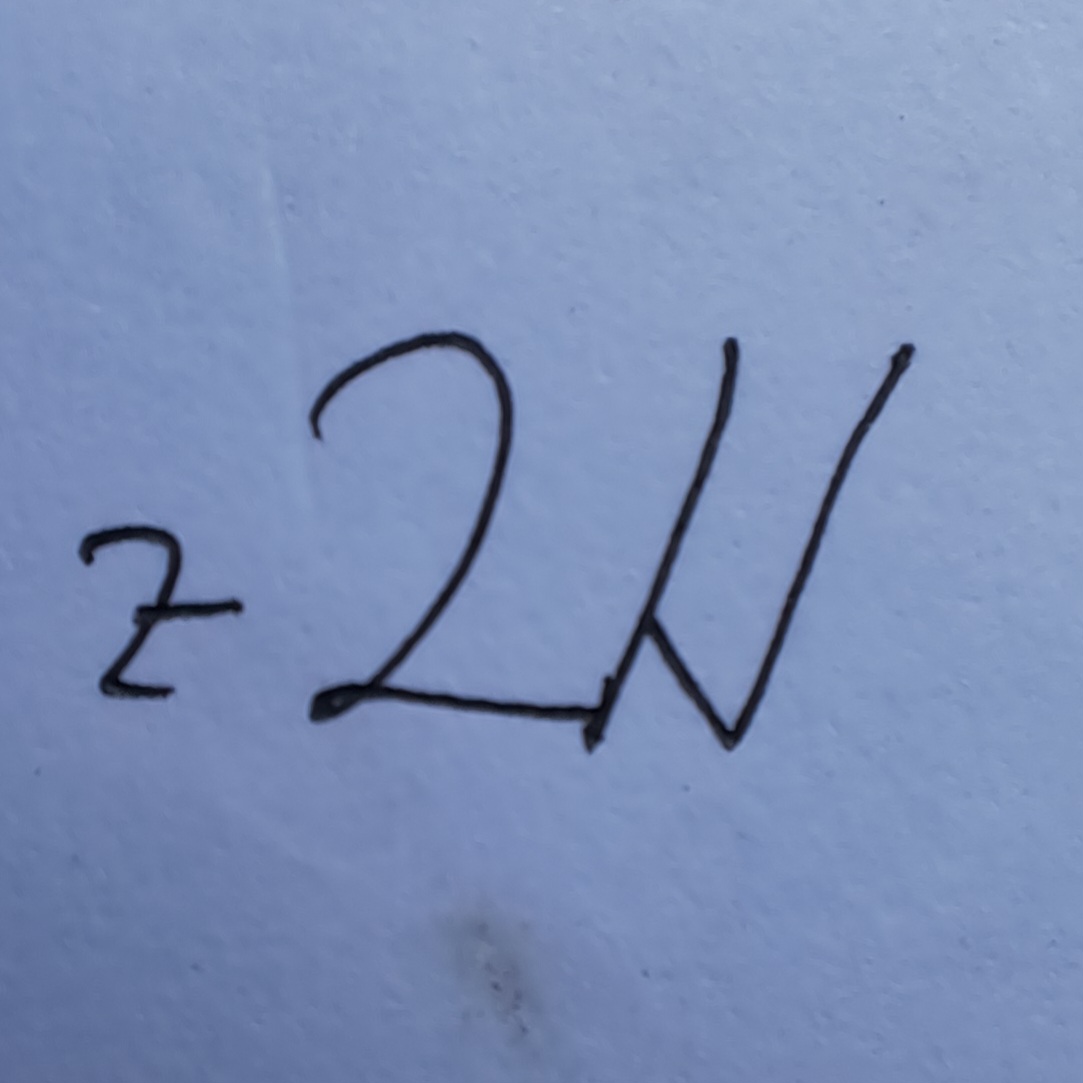 z 2N